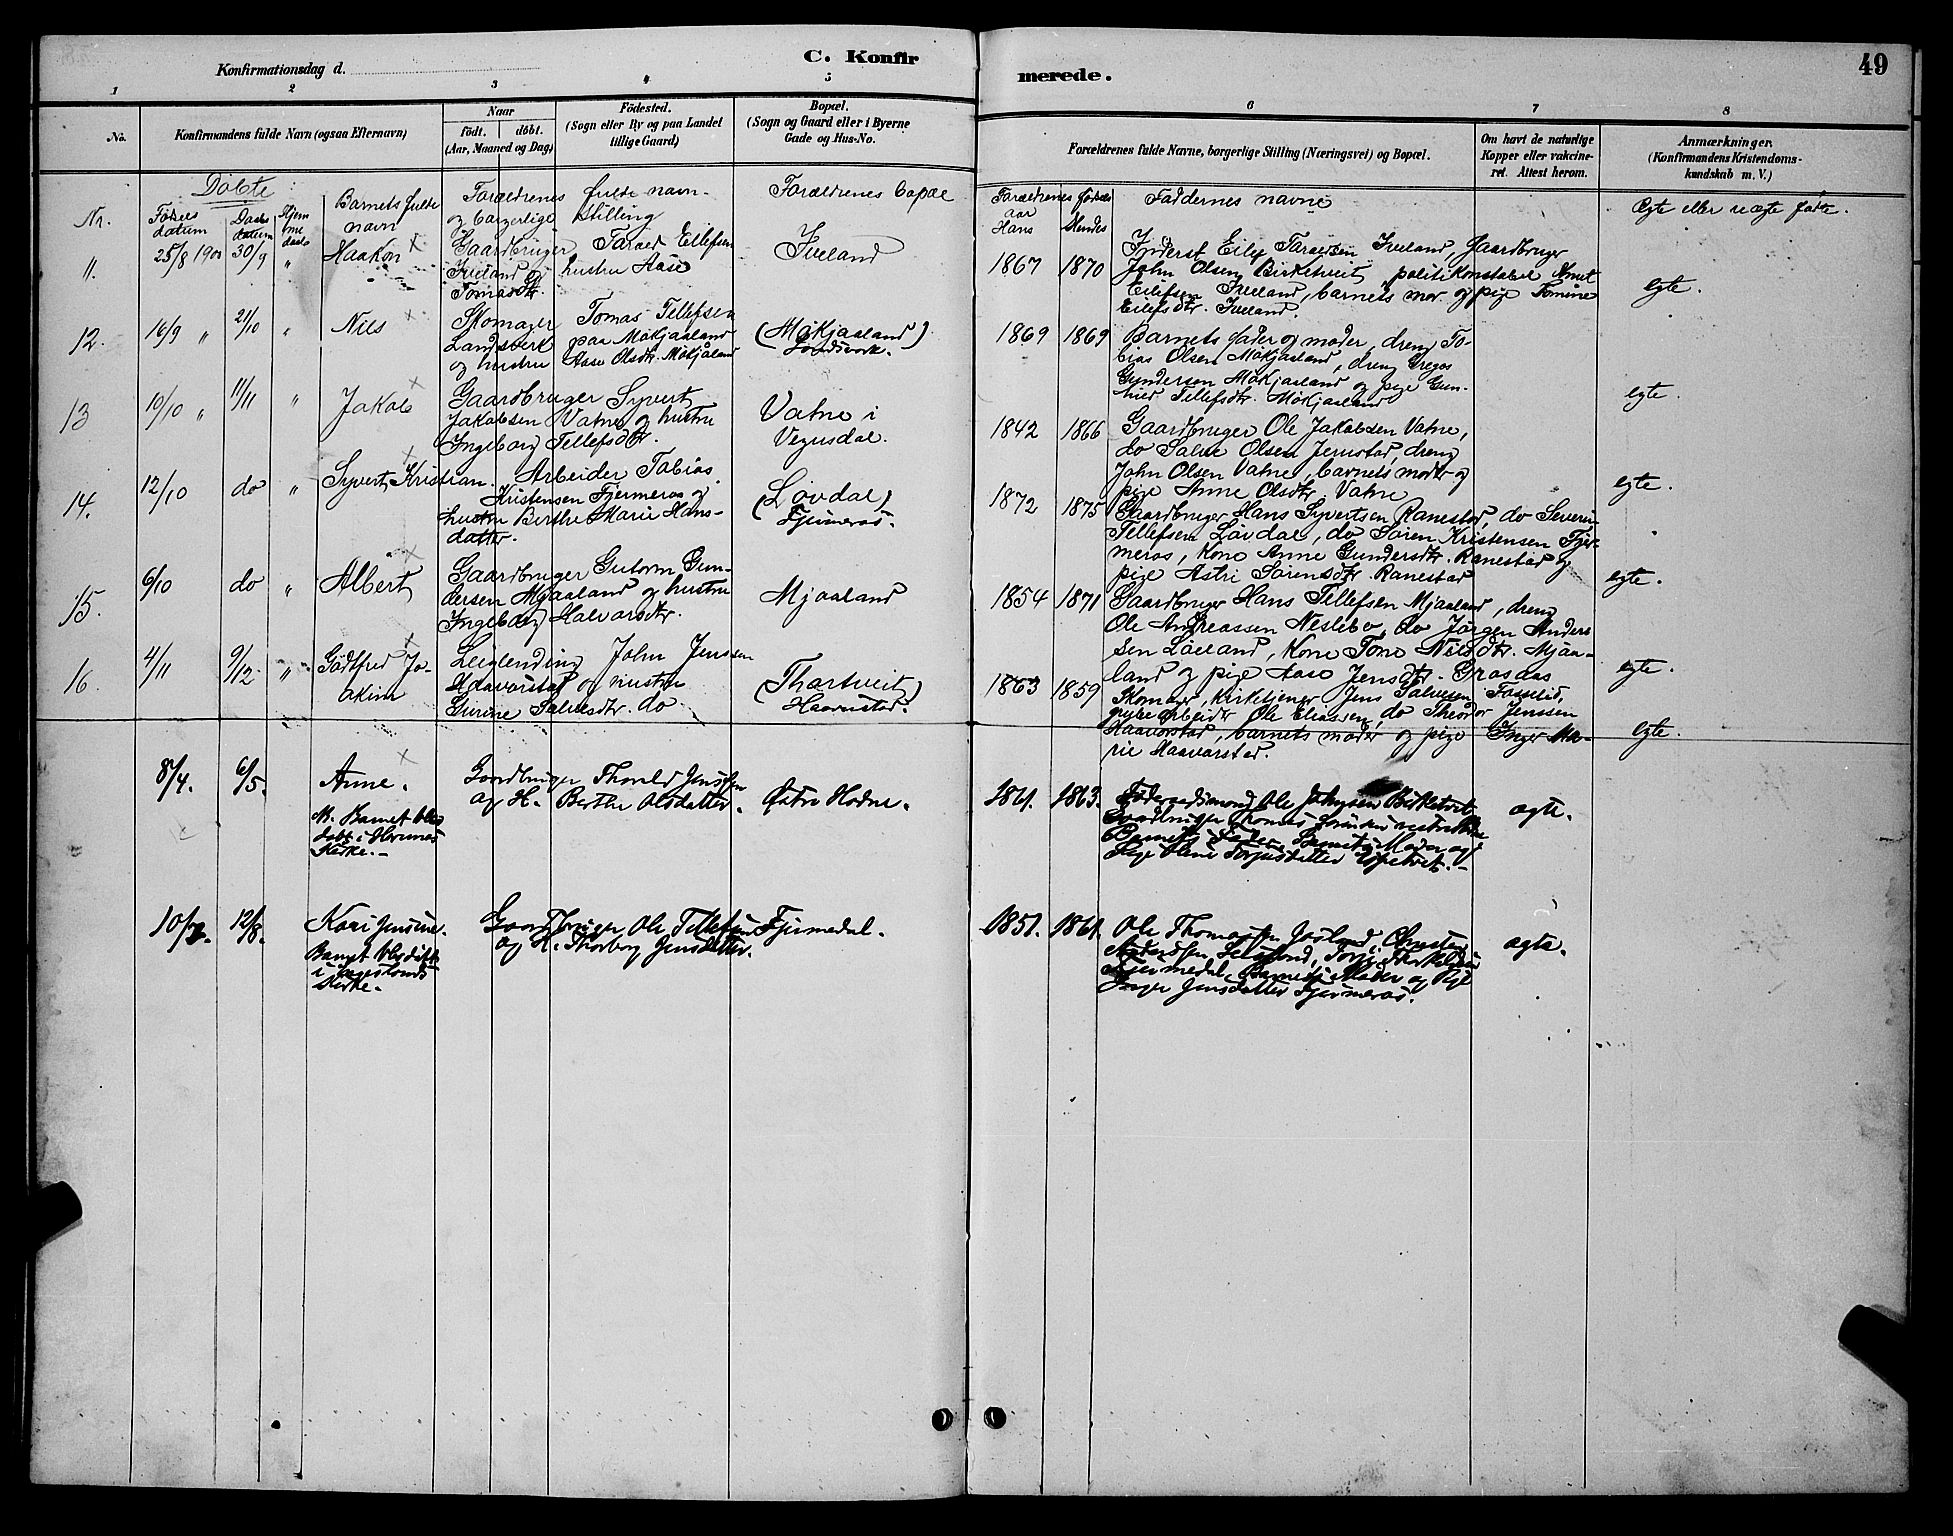 Konfirmationsdag d.
C. Konfir
merede.
49
1 2 3 4 5 6 7 8
No.
Konfirmandens fulde Navn (ogsaa Efternavn)
Naar
födt. döbt.
(Aar, Maaned og Dag)
Födested.
(Sogn eller By og paa Landet
tillige Gaard)
Bopæl.
(Sogn og Gaard eller i Byerne
Gade og Hus-No.
Forældrenes fulde Navne, borgerlige Stilling (Næringsvei) og Bopæl.
Om havt de naturlige
Kopper eller vakcine-
ret. Attest herom.
Anmærkninger.
(Konfirmandens Kristendoms-
kundskab m. V.)
Döbte
Nr.
Födsels
datum
Daabs
datum
Hjem
me
daab
Barnets fulde
navn
Foræeldrenes fulde navn
og borgerlige stilling
Forældrenes bopæl
Foræeldrenes födsels
aar
Hans Hendes
Faddernes navne
Egte eller uegte födte.
11. 25/8 1900 30/9 " Haakon
Gaardbruger Tarald Eilefsen
Iveland og hustru Aase
Tomasdtr.
Iveland
1867 1870
Inderst Eilef Taraldsen Iveland, Gaardbruger
John Olsen Birketveit, politikonstabel Knut
Eilefsen Iveland, barnets mor og pige Tomine
Eilefsdtr. Iveland.
egte.
12. 16/9 " 21/10 " Nils
Skomager Tomas Tellefsen
Landsverk paa Mökjaaland
og hustru Aase Olsdtr. Mökjåland
(Mökjaaland)
Landsverk.
1869 1869
Barnets fader og moder, dreng To-
bias Olsen Mökjaaland, dreng Gregos
Gundersen Mökjaaland og pige Gun-
hild Tellefsdtr. Mökjaaland
egte.
13 10/10 " 11/11 " Jakob
Gaardbruger Syvert
Jakobsen Vatne og hustru
Ingeborg Tellefsdtr.
Vatne i
Vegusdal.
1842 1866
Gaardbruger Ole Jakobsen Vatne,
do Salve Olsen Jerustad, dreng
John Olsen Vatne, barnets moder og
pige Anne Olsdtr. Vatne
egte.
14. 12/10 do " Syvert Kristian.
Arbeider Tobias
Kristensen Fjermeros og
hustru Berthe Marie Hans-
datter.
(Lövdal)
Fjermeros.
1872 1875
Gaardbruger Hans Syvertsen Ranestad, do Severin
Tellefsen Lövdal, do Sören Kristensen Fjer-
meros, Kone Anne Gundersdtr. Ranestad og
pige Astri Sörensdtr. Ranestad
egte.
15. 6/10 do " Albert
Gaardbruger Gutorm Gun-
dersen Mjaaland og hustru
Ingeborg Halvorsdtr.
Mjaaland
1854 1871
Gaardbruger Hans Tellefsen Mjaaland, dreng
Ole Andreassen Neslebo, do Jörgen Anders
sen Löeland, Kone Tone Nilsdtr. Mjaa-
land og pige Aase Jensdtr. Grosdas
egte.
16. 4/11 9/12 " Godtfred Jo-
akim
Leilending John Jenssen
Haavorstad og hustru
Gurine Salvesdtr. do
(Thortveit)
Haavorstad.
1863 1859
Skomager, Kirketjener Jens Salvesen Fosselid,
grubearbeider Ole Eliassen, do Theodor Jenssen
Haavorstad, barnets moder og pige Inger Ma-
rie Haavarstad.
egte.
8/4. 6/5. Anne.
N. Barnet blev
døbt i Herefoss
Kirke.
Gaardbruger Thorald Jenssen
og H. Berthe Olsdatter.
Østre Hodne.
1861. 1863.
Føderaadsmand Ole Johnsen Birketveit
Gaardbruger Thomas
Barnets Fader, Barnets Moder og
Pige Olene Torjusdatter
ægte.
10/7. 12/8. Kari Jensine.
Barnet blev døbt
i Vegusdals
Kirke.
Gaardbruger Ole Tellefsen
og H. Thorborg Jensdatter.
Fjermedal.
1851. 1861.
Ole Thomassen
Anderssen
Fjermedal, Barnets Moder og Pige
Inger Jensdatter Fjermeros.
ægte.